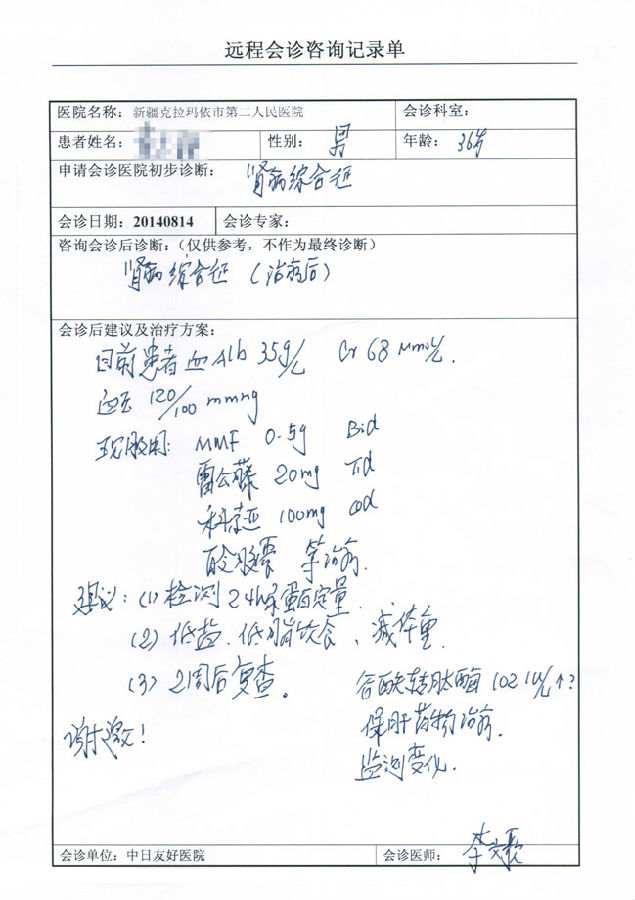 远程会诊咨询记录单
医院名称：新疆克拉玛依市第二人民医院 会诊科室：
患者姓名： 性别： 男 年龄： 36岁
申请会诊医院初步诊断： 肾病综合征
会诊日期：20140814 会诊专家：
咨询会诊后诊断：（仅供参考，不作为最终诊断）
肾病综合征（治疗后）
会诊后建议及治疗方案：
目前患者血Alb 35g/L Cr 68 μmol/L.
血压 120/100 mmHg
现服用： MMF 0.5g Bid
雷公藤 20mg Tid
科素亚 100mg Qd
百令胶囊 等治疗.
建议：(1) 检测24h尿蛋白定量
(2) 低盐、低脂饮食、减体重
(3) 2周后复查。
谷丙转肽酶 102 IU/L↑?
保肝药物治疗.
监测变化.
谢邀!
会诊单位：中日友好医院 会诊医师：